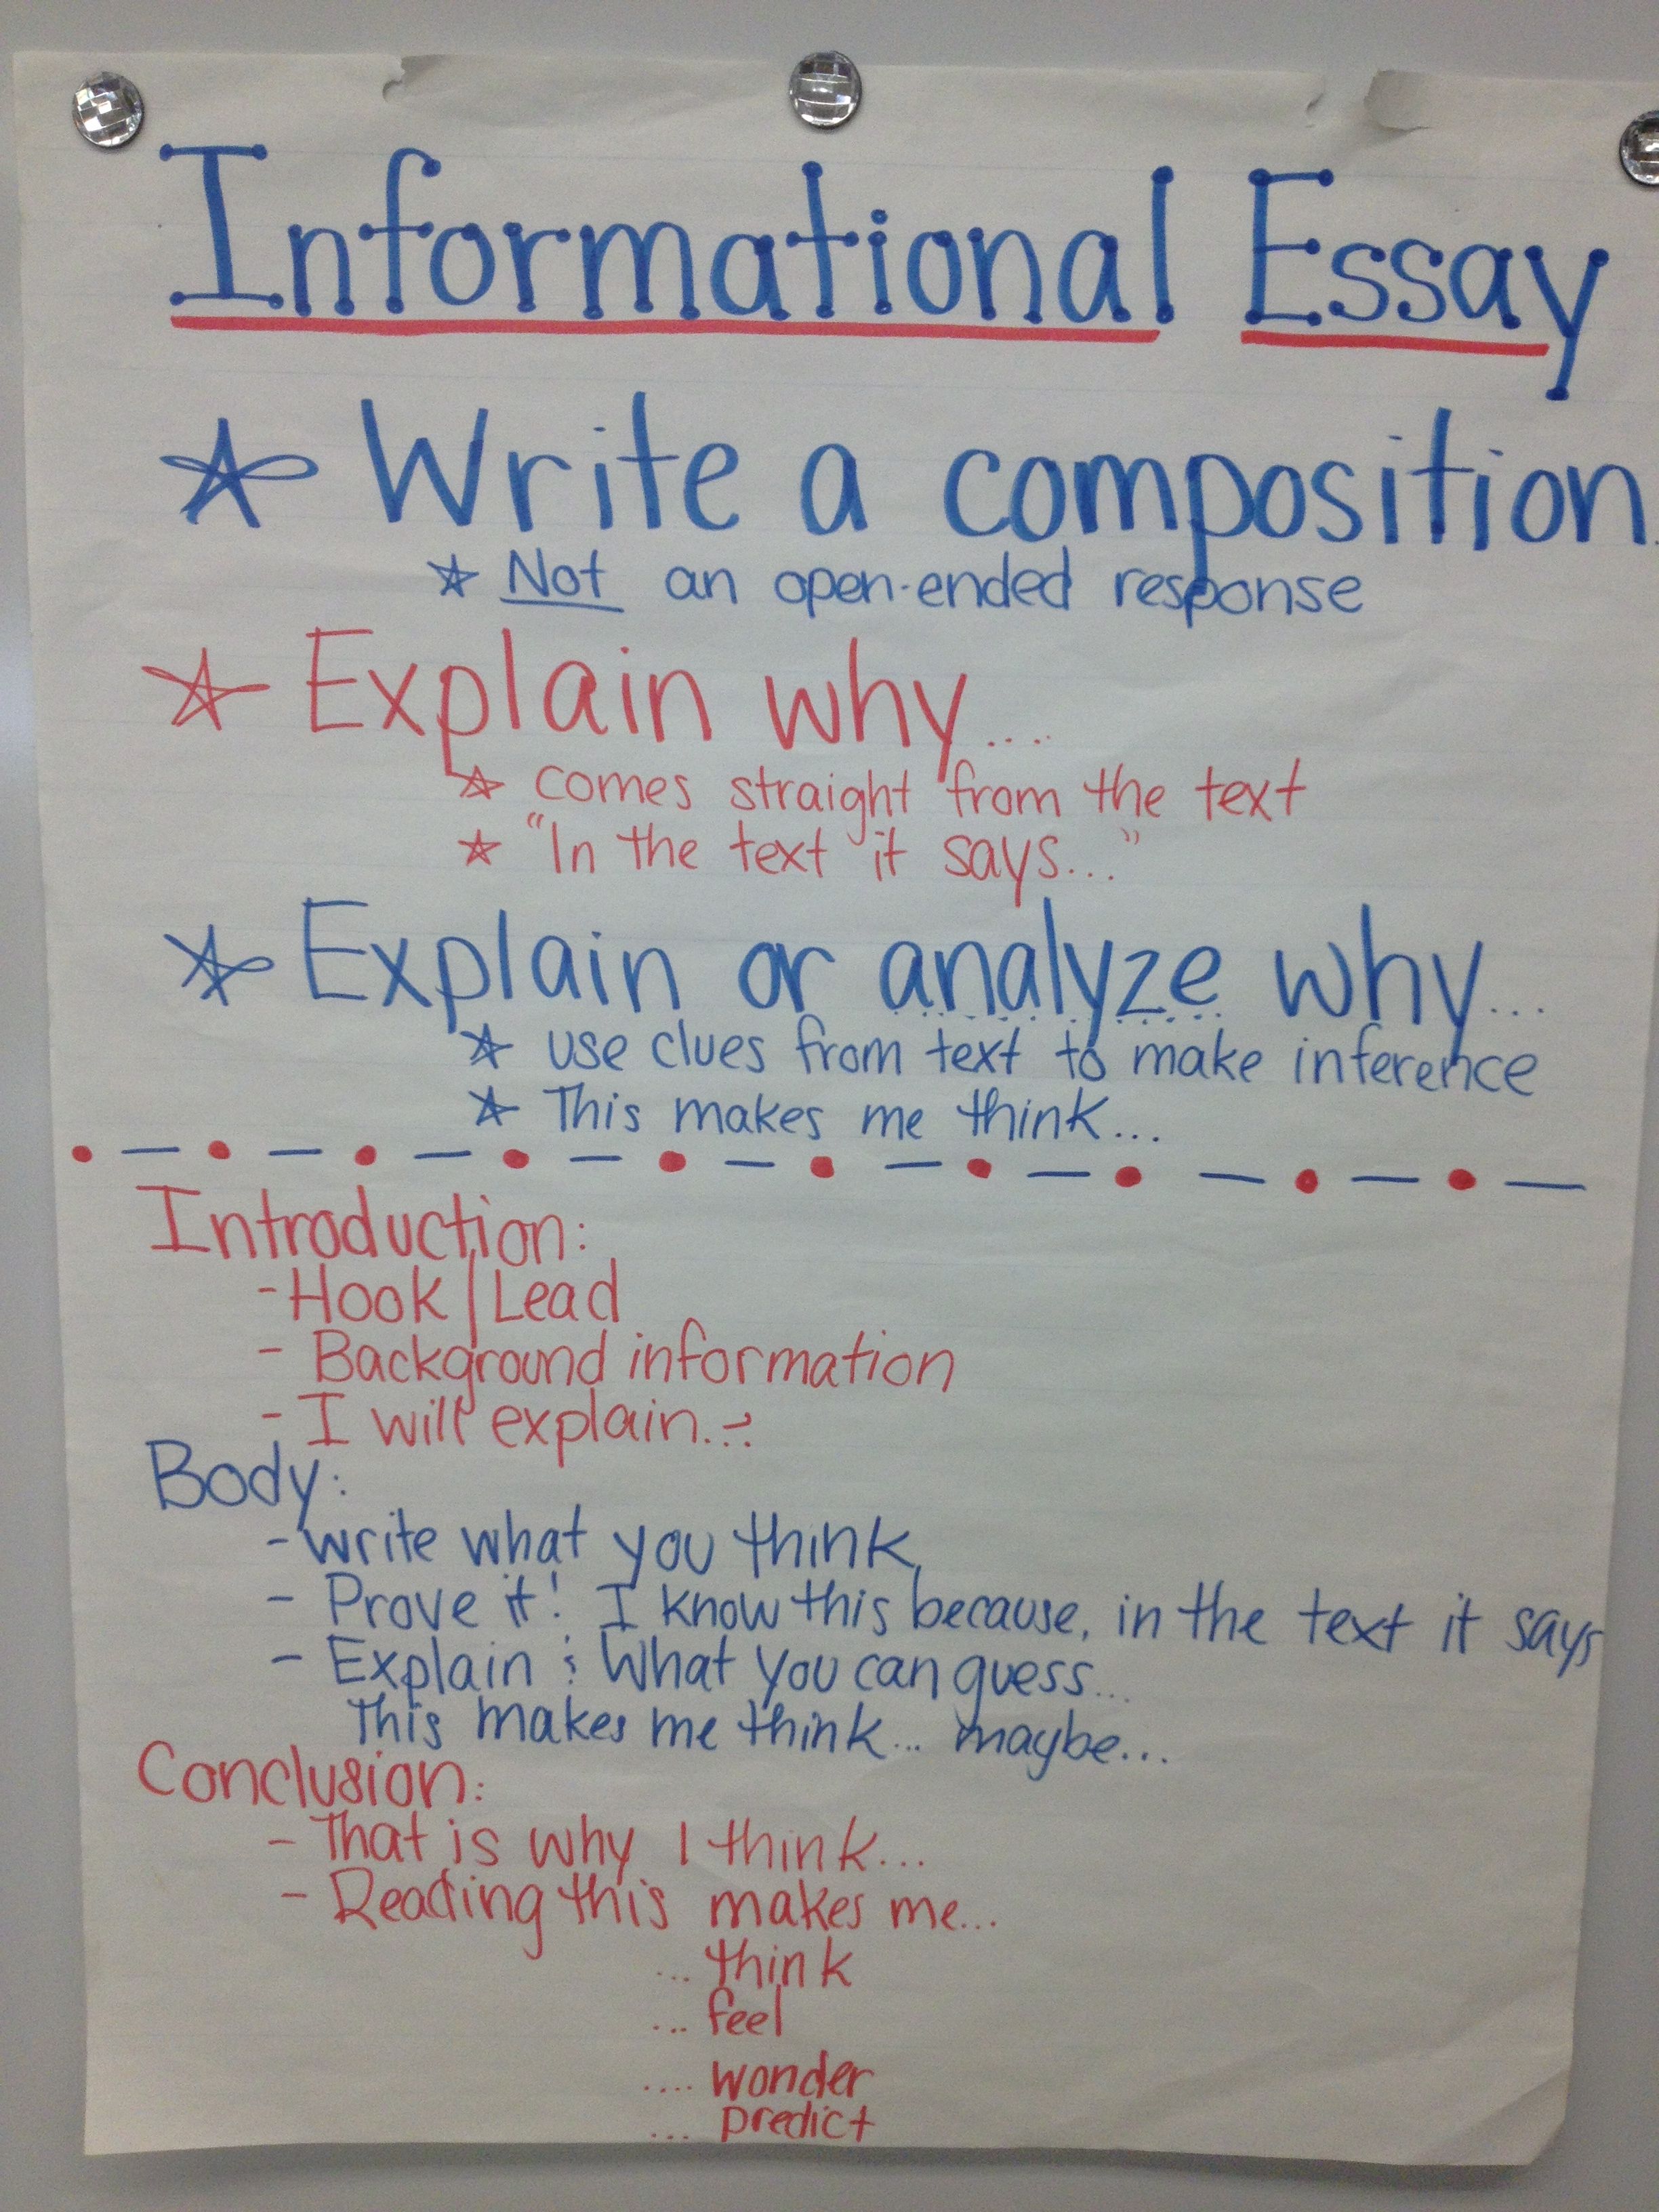 Informational Essay
Write a composition.
Not an open-ended response
Explain why....
comes straight from the text
"In the text it says..."
Explain or analyze why...
use clues from text to make inference
This makes me think...
Introduction:
- Hook/Lead
- Background information
- I will explain...
Body:
- write what you think
- Prove it! I know this because, in the text it says
- Explain: What you can guess...
This makes me think... maybe...
Conclusion:
- That is why I think...
- Reading this makes me...
... think
... feel
.... wonder
... predict